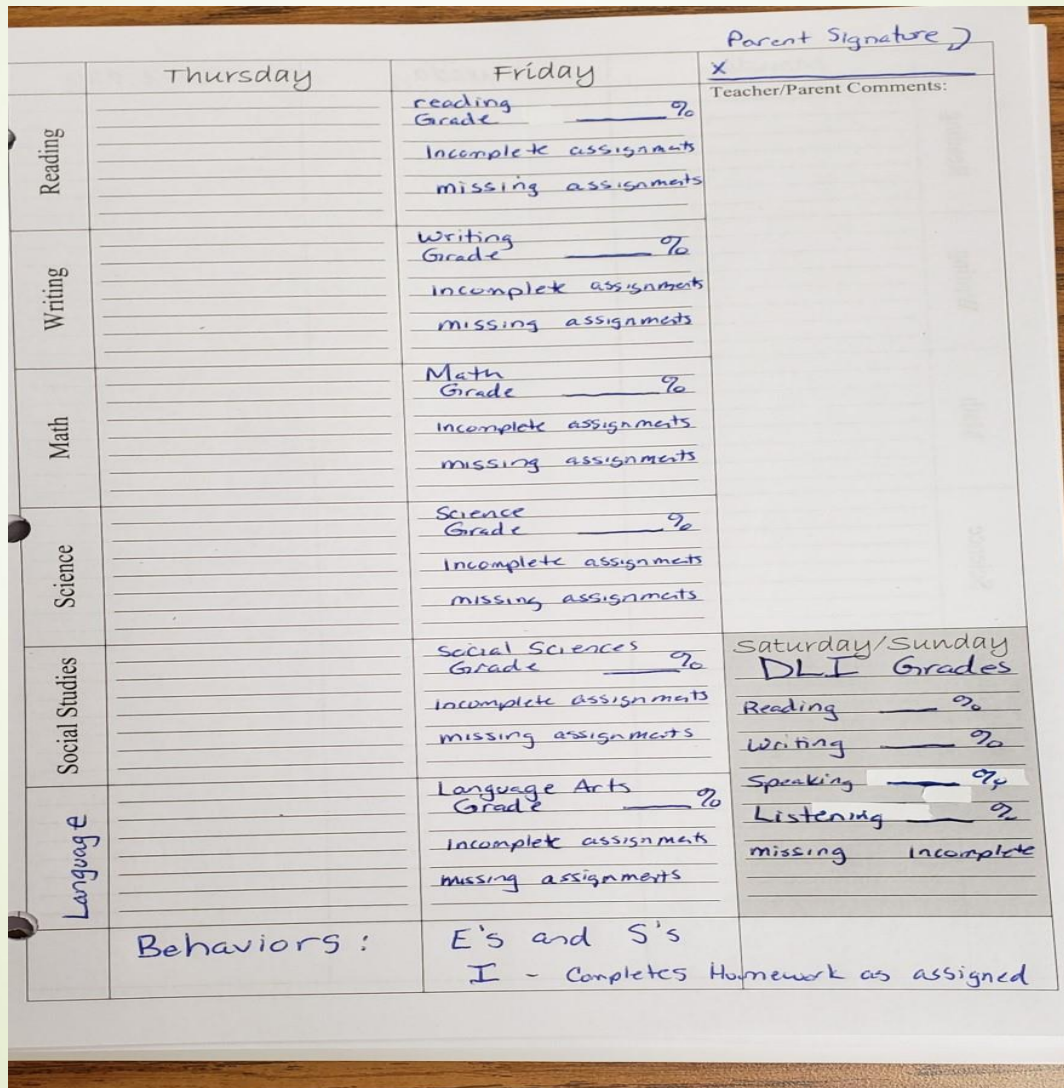 Parent Signature
Thursday
Friday
X
Teacher/Parent Comments:
Reading
reading
Grade ____%
Incomplete assignments
missing assignments
Writing
Writing
Grade ____%
incomplete assignments
missing assignments
Math
Math
Grade ____%
incomplete assignments
missing assignments
Science
Science
Grade ____%
Incomplete assignments
missing assignments
Social Studies
Social Sciences
Grade ____%
incomplete assignments
missing assignments
Saturday/Sunday
DLI Grades
Reading ____%
Writing ____%
Speaking ____%
Listening ____%
missing incomplete
Language
Language Arts
Grade ____%
Incomplete assignments
missing assignments
Behaviors :
E's and S's
I - Completes Homework as assigned